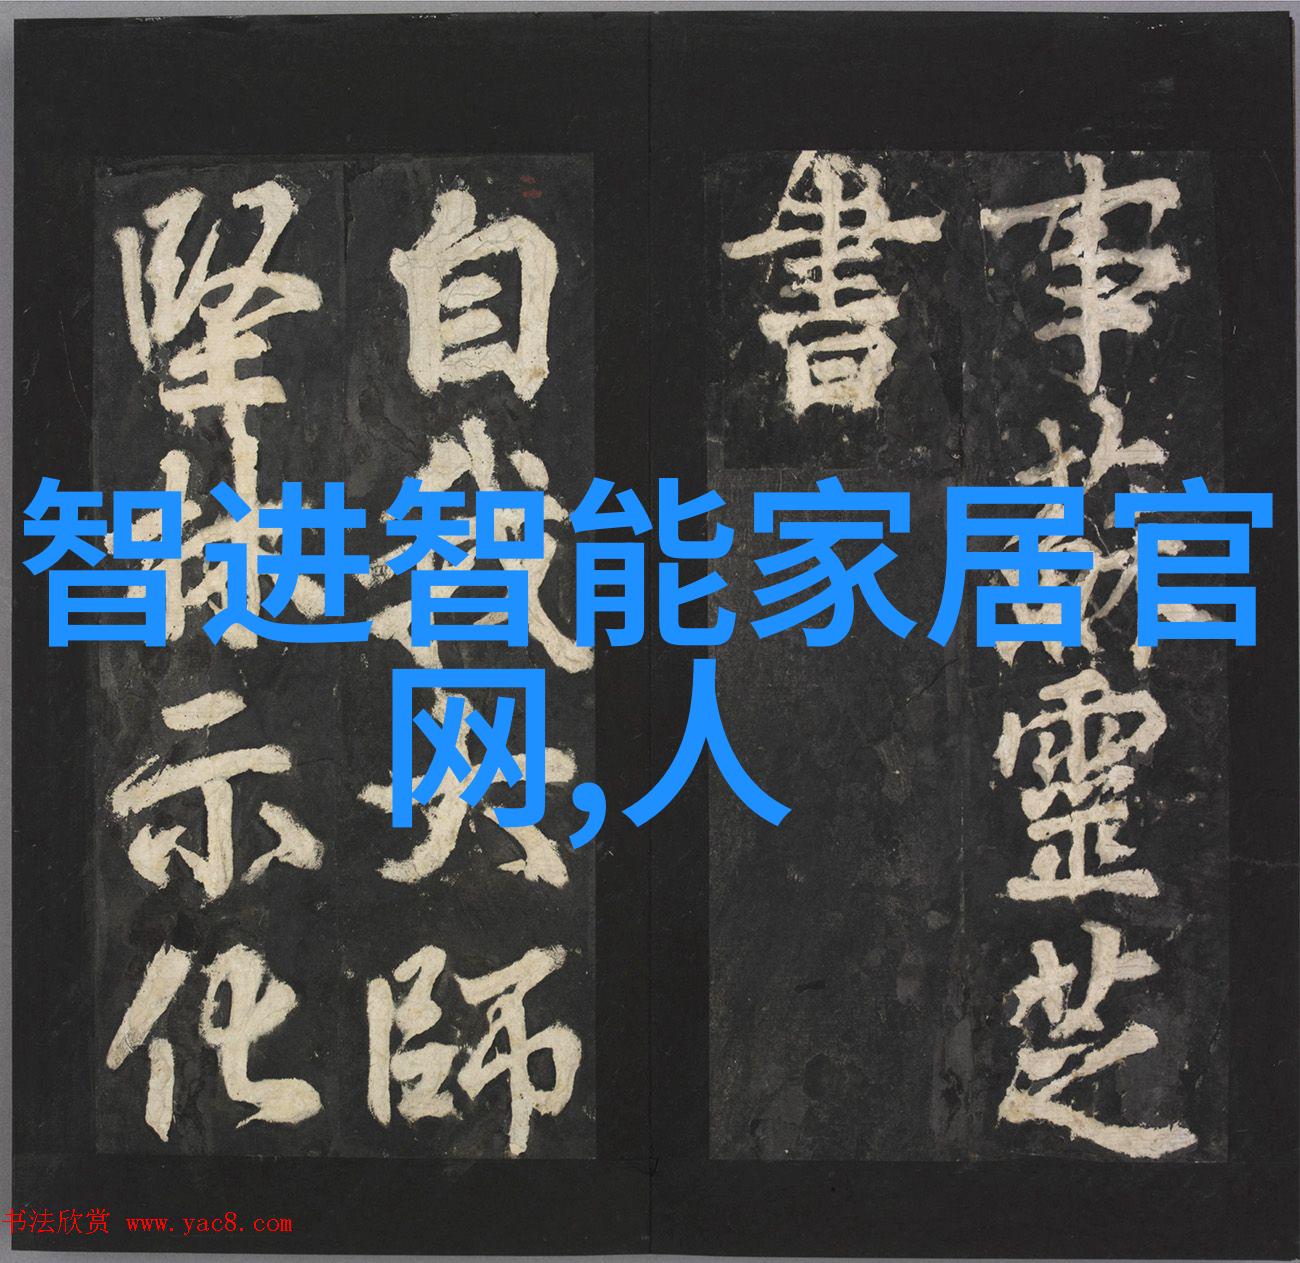 事靈芝
書
自我大師
堅林示化
智进智能家居官
网,人
书法欣赏 www.yac8.com